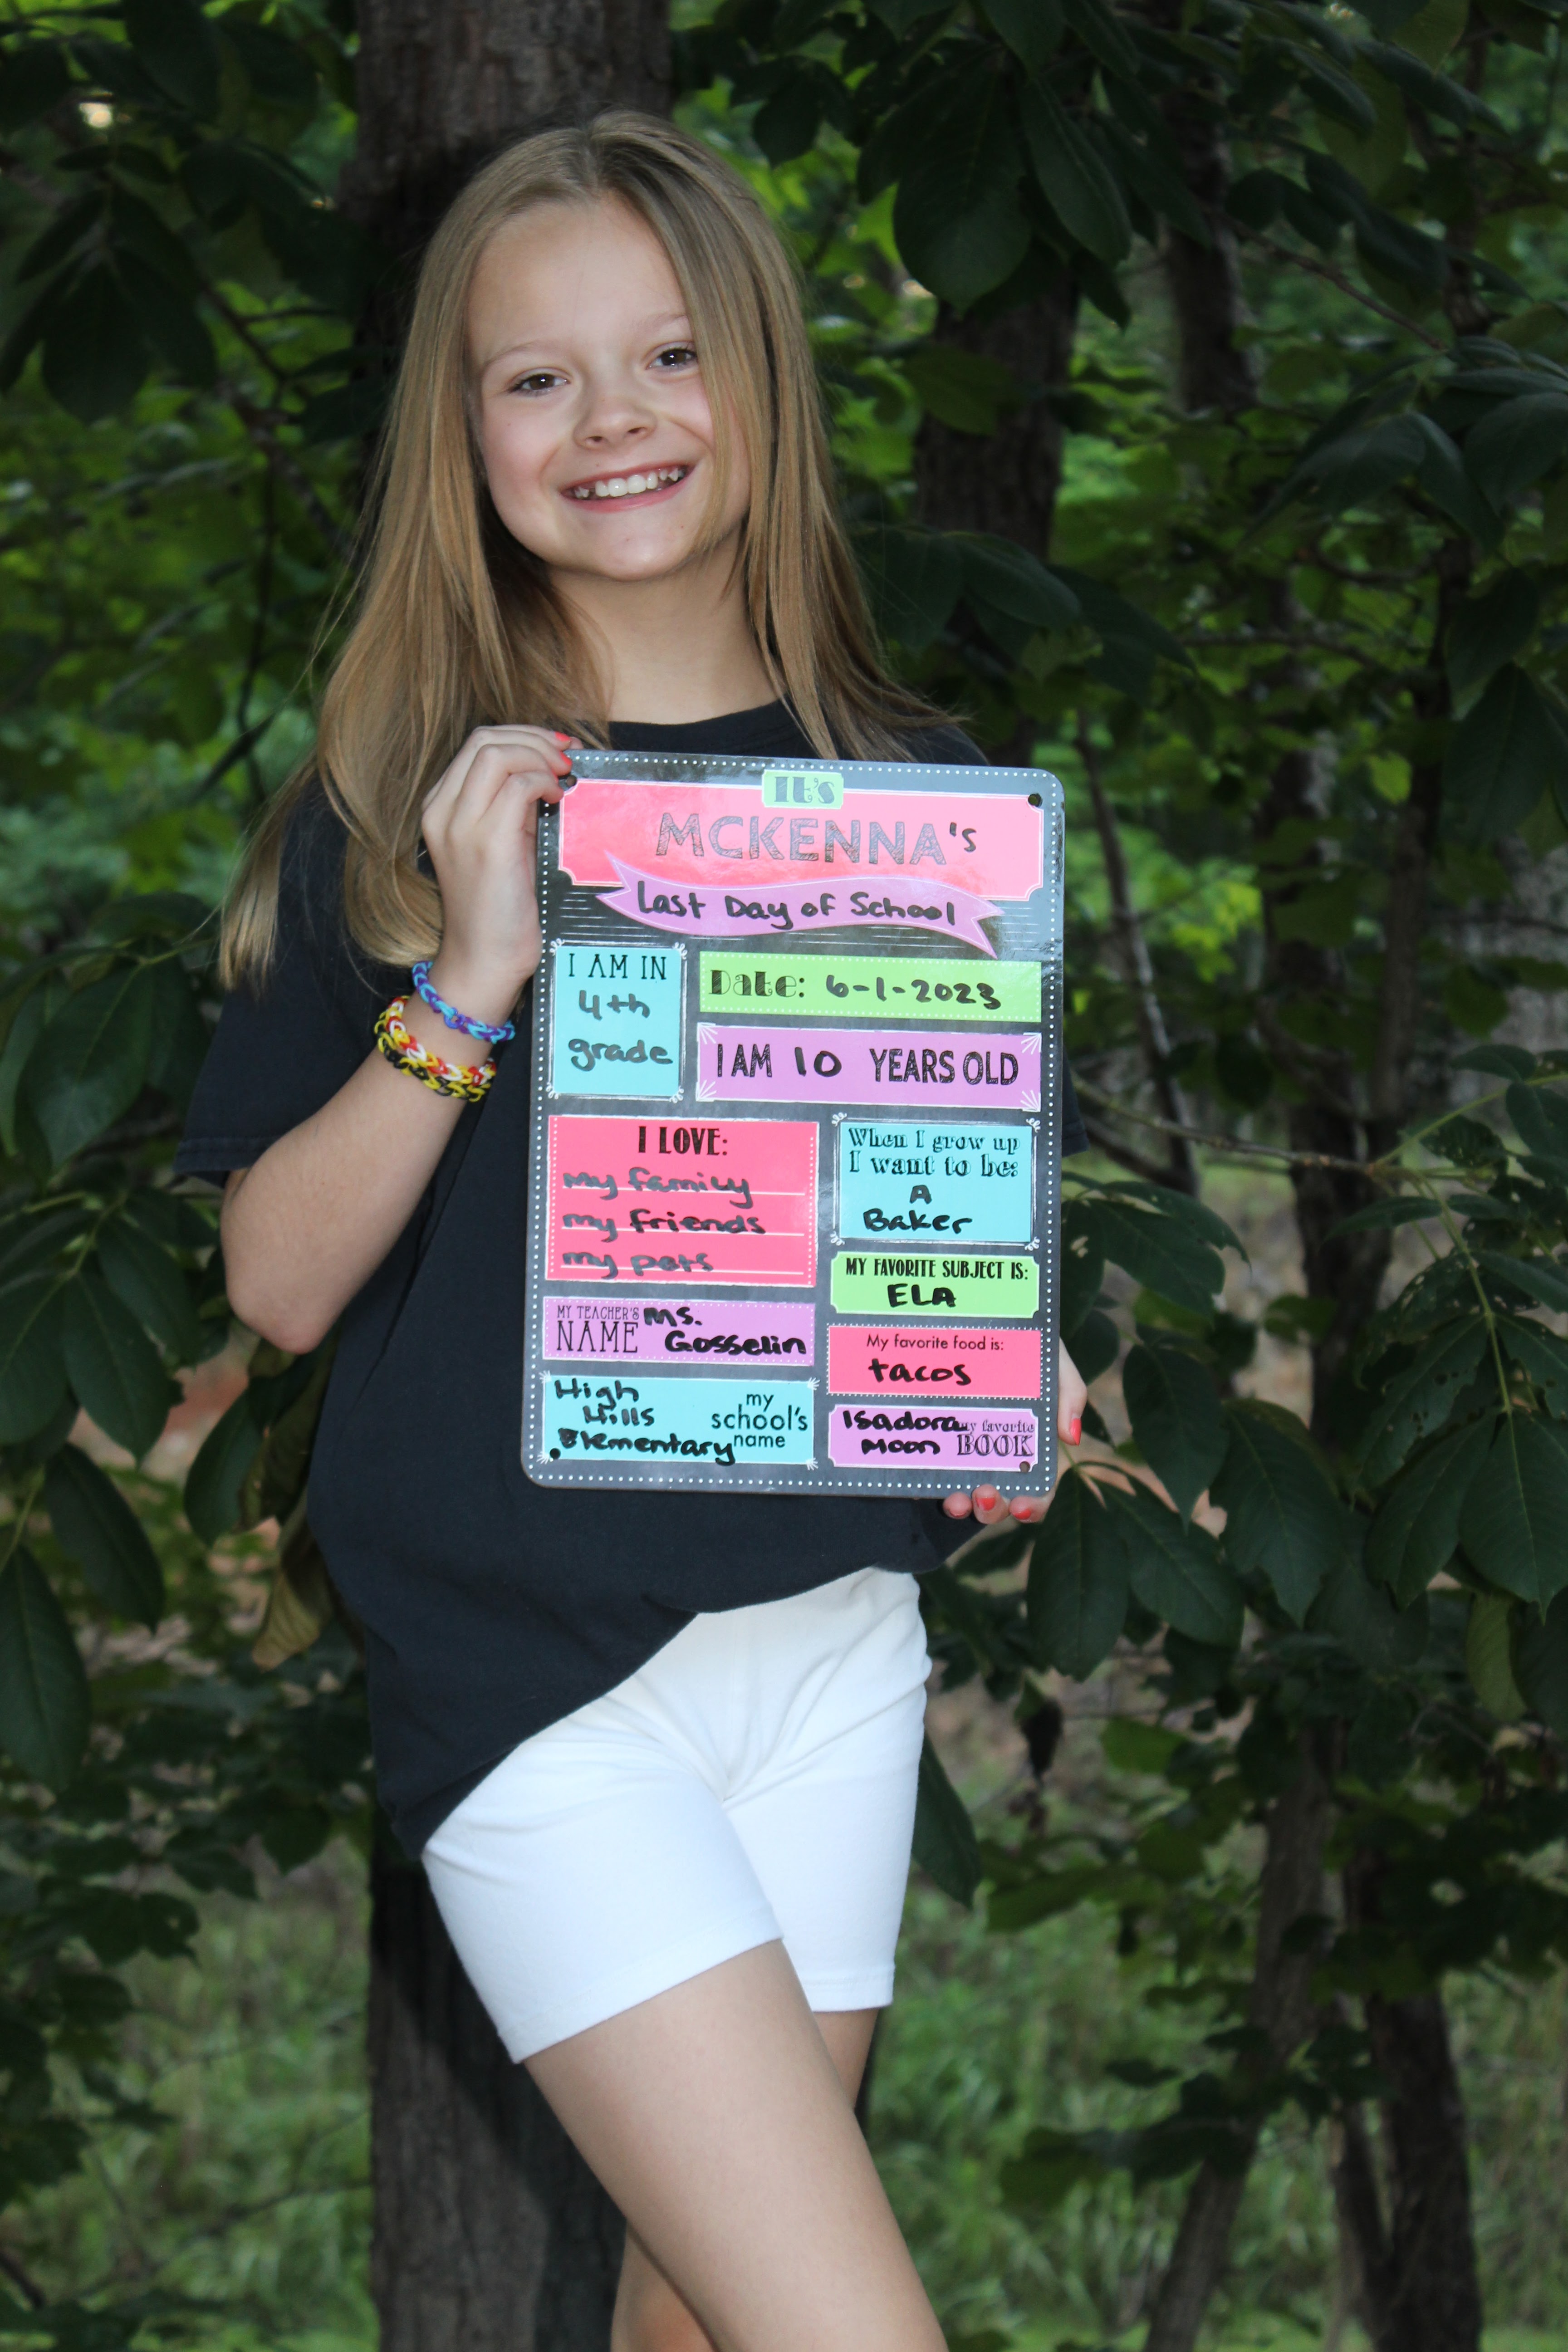 It's
MCKENNA's
Last Day of School
I AM IN
4th
grade
Date: 6-1-2023
I AM 10 YEARS OLD
I LOVE:
my family
my friends
my pets
When I grow up
I want to be:
A
Baker
MY FAVORITE SUBJECT IS:
ELA
MY TEACHER'S
NAME
Ms.
Gosselin
My favorite food is:
tacos
High
Hills
Elementary
my
school's
name
Isadora
Moon
my favorite
BOOK